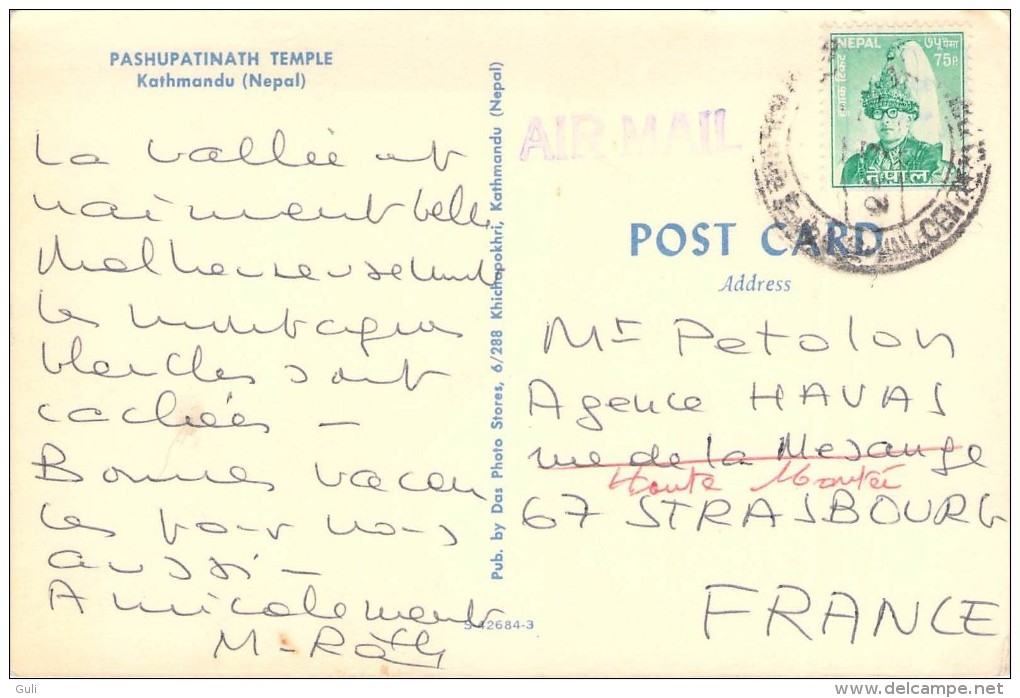 PASHUPATINATH TEMPLE
Kathmandu (Nepal)
La vallée est
vraiment belle
Malheureusement
les montagnes
blanches sont
cachées —
Bonnes vacan
ces pour vous
aussi —
Amicalement
M. Räth
Pub. by Das Photo Stores, 6/288 Khichapokhri, Kathmandu (Nepal)
S-42684-3
AIR MAIL
NEPAL ७५ पैसा
75P.
हुलाक टिकट
नेपाल
POST CARD
Address
Mr Petolon
Agence HAVAS
rue de la Mesange
Haute Montée
67 STRASBOURG
FRANCE
Guli
delcampe.net